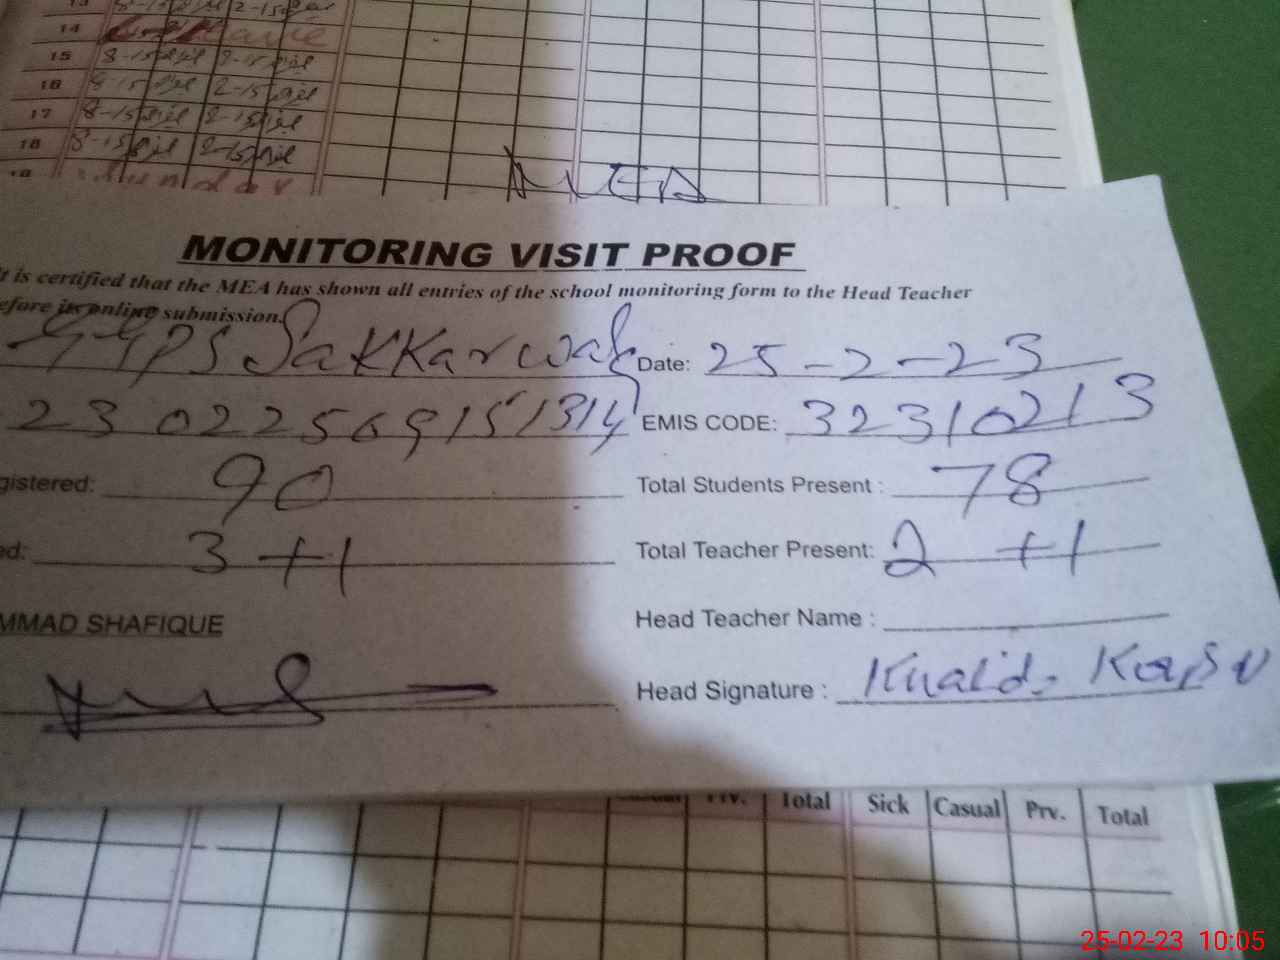 14
15 8-15 2-15
16 8-15 2-15
17 8-15 2-15
18 8-15 2-15
MEA
MONITORING VISIT PROOF
It is certified that the MEA has shown all entries of the school monitoring form to the Head Teacher
efore its online submission.
GGPS Sakkar wah Date: 25-2-23
EMIS CODE: 32310213
gistered: 90 Total Students Present : 78
ed: 3 +1 Total Teacher Present: 2 +1
MMAD SHAFIQUE Head Teacher Name :
Head Signature : Khalid
Prv. Total Sick Casual Prv. Total
25-02-23 10:05